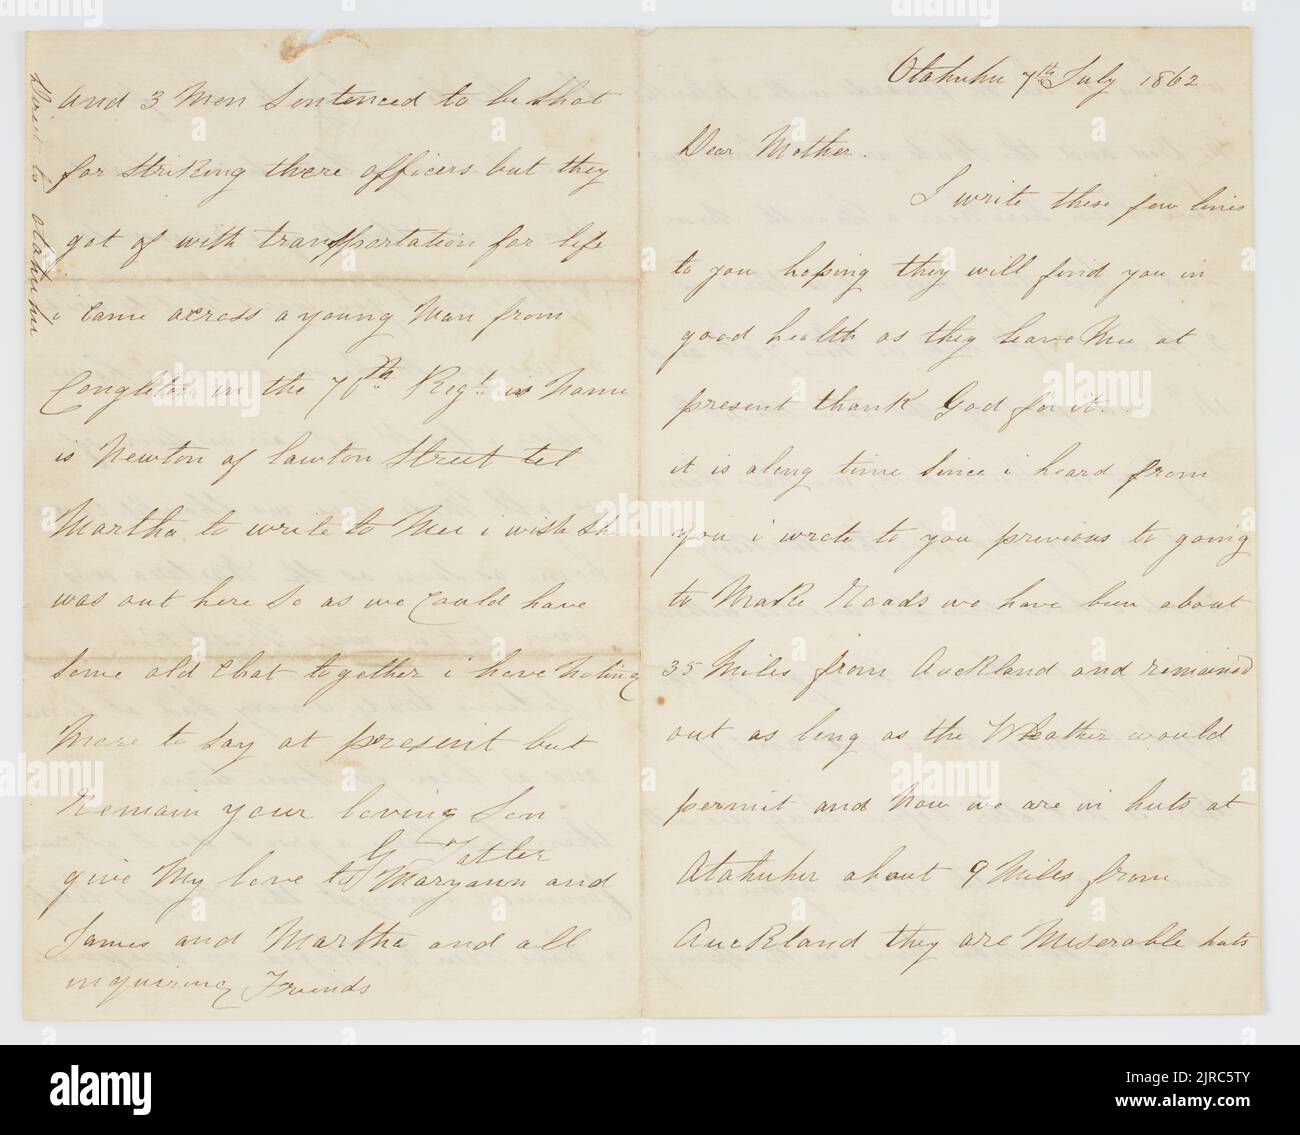 Otahuhu 7th July 1862
Dear Mother.
I write these few lines
to you hoping they will find you in
good health as they leave Mee at
present thank God for it.
it is along time since i heard from
you i wrote to you previous to going
to Make Roads we have been about
35 Miles from Auckland and remained
out as long as the Wheather would
permit and Now we are in huts at
Otahuhu about 9 Miles from
Auckland they are Miserable huts
and 3 Men Sentenced to be Shot
for Striking there officers but they
got of with transportation for life
i came across a young Man from
Congleton in the 70th Regt is Name
is Newton of lawton Street tel
Martha to write to Mee i wish She
was out here So as we Could have
Some old Chat together i have Noting
More to Say at present but
Remain your loving Son
G Tatler
give My love to Maryann and
James and Martha and all
inquiring Friends
Direct to otahuhu
alamy
Image ID: 2JRC5TY
www.alamy.com